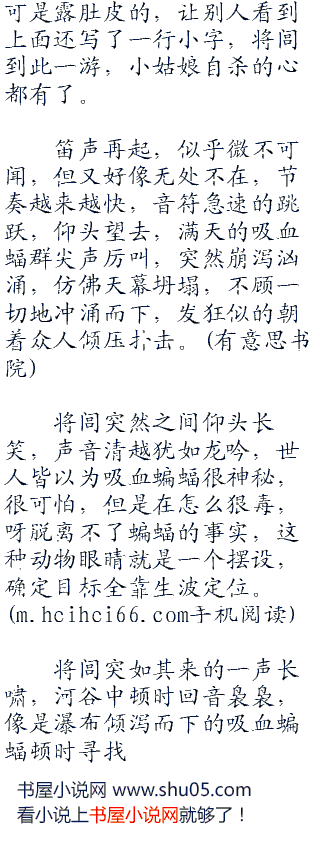 可是露肚皮的，让别人看到
上面还写了一行小字，将闾
到此一游，小姑娘自杀的心
都有了。
笛声再起，似乎微不可
闻，但又好像无处不在，节
奏越来越快，音符急速的跳
跃，仰头望去，满天的吸血
蝠群尖声厉叫，突然崩泻汹
涌，仿佛天幕坍塌，不顾一
切地冲涌而下，发狂似的朝
着众人倾压扑击。(有意思书
院)
将闾突然之间仰头长
笑，声音清越犹如龙吟，世
人皆以为吸血蝙蝠很神秘，
很可怕，但是在怎么狠毒，
呀脱离不了蝙蝠的事实，这
种动物眼睛就是一个摆设，
确定目标全靠生波定位。
(m.hcihci66.com手机阅读)
将闾突如其来的一声长
啸，河谷中顿时回音袅袅，
像是瀑布倾泻而下的吸血蝙
蝠顿时寻找
书屋小说网 www.shu05.com
看小说上书屋小说网就够了！